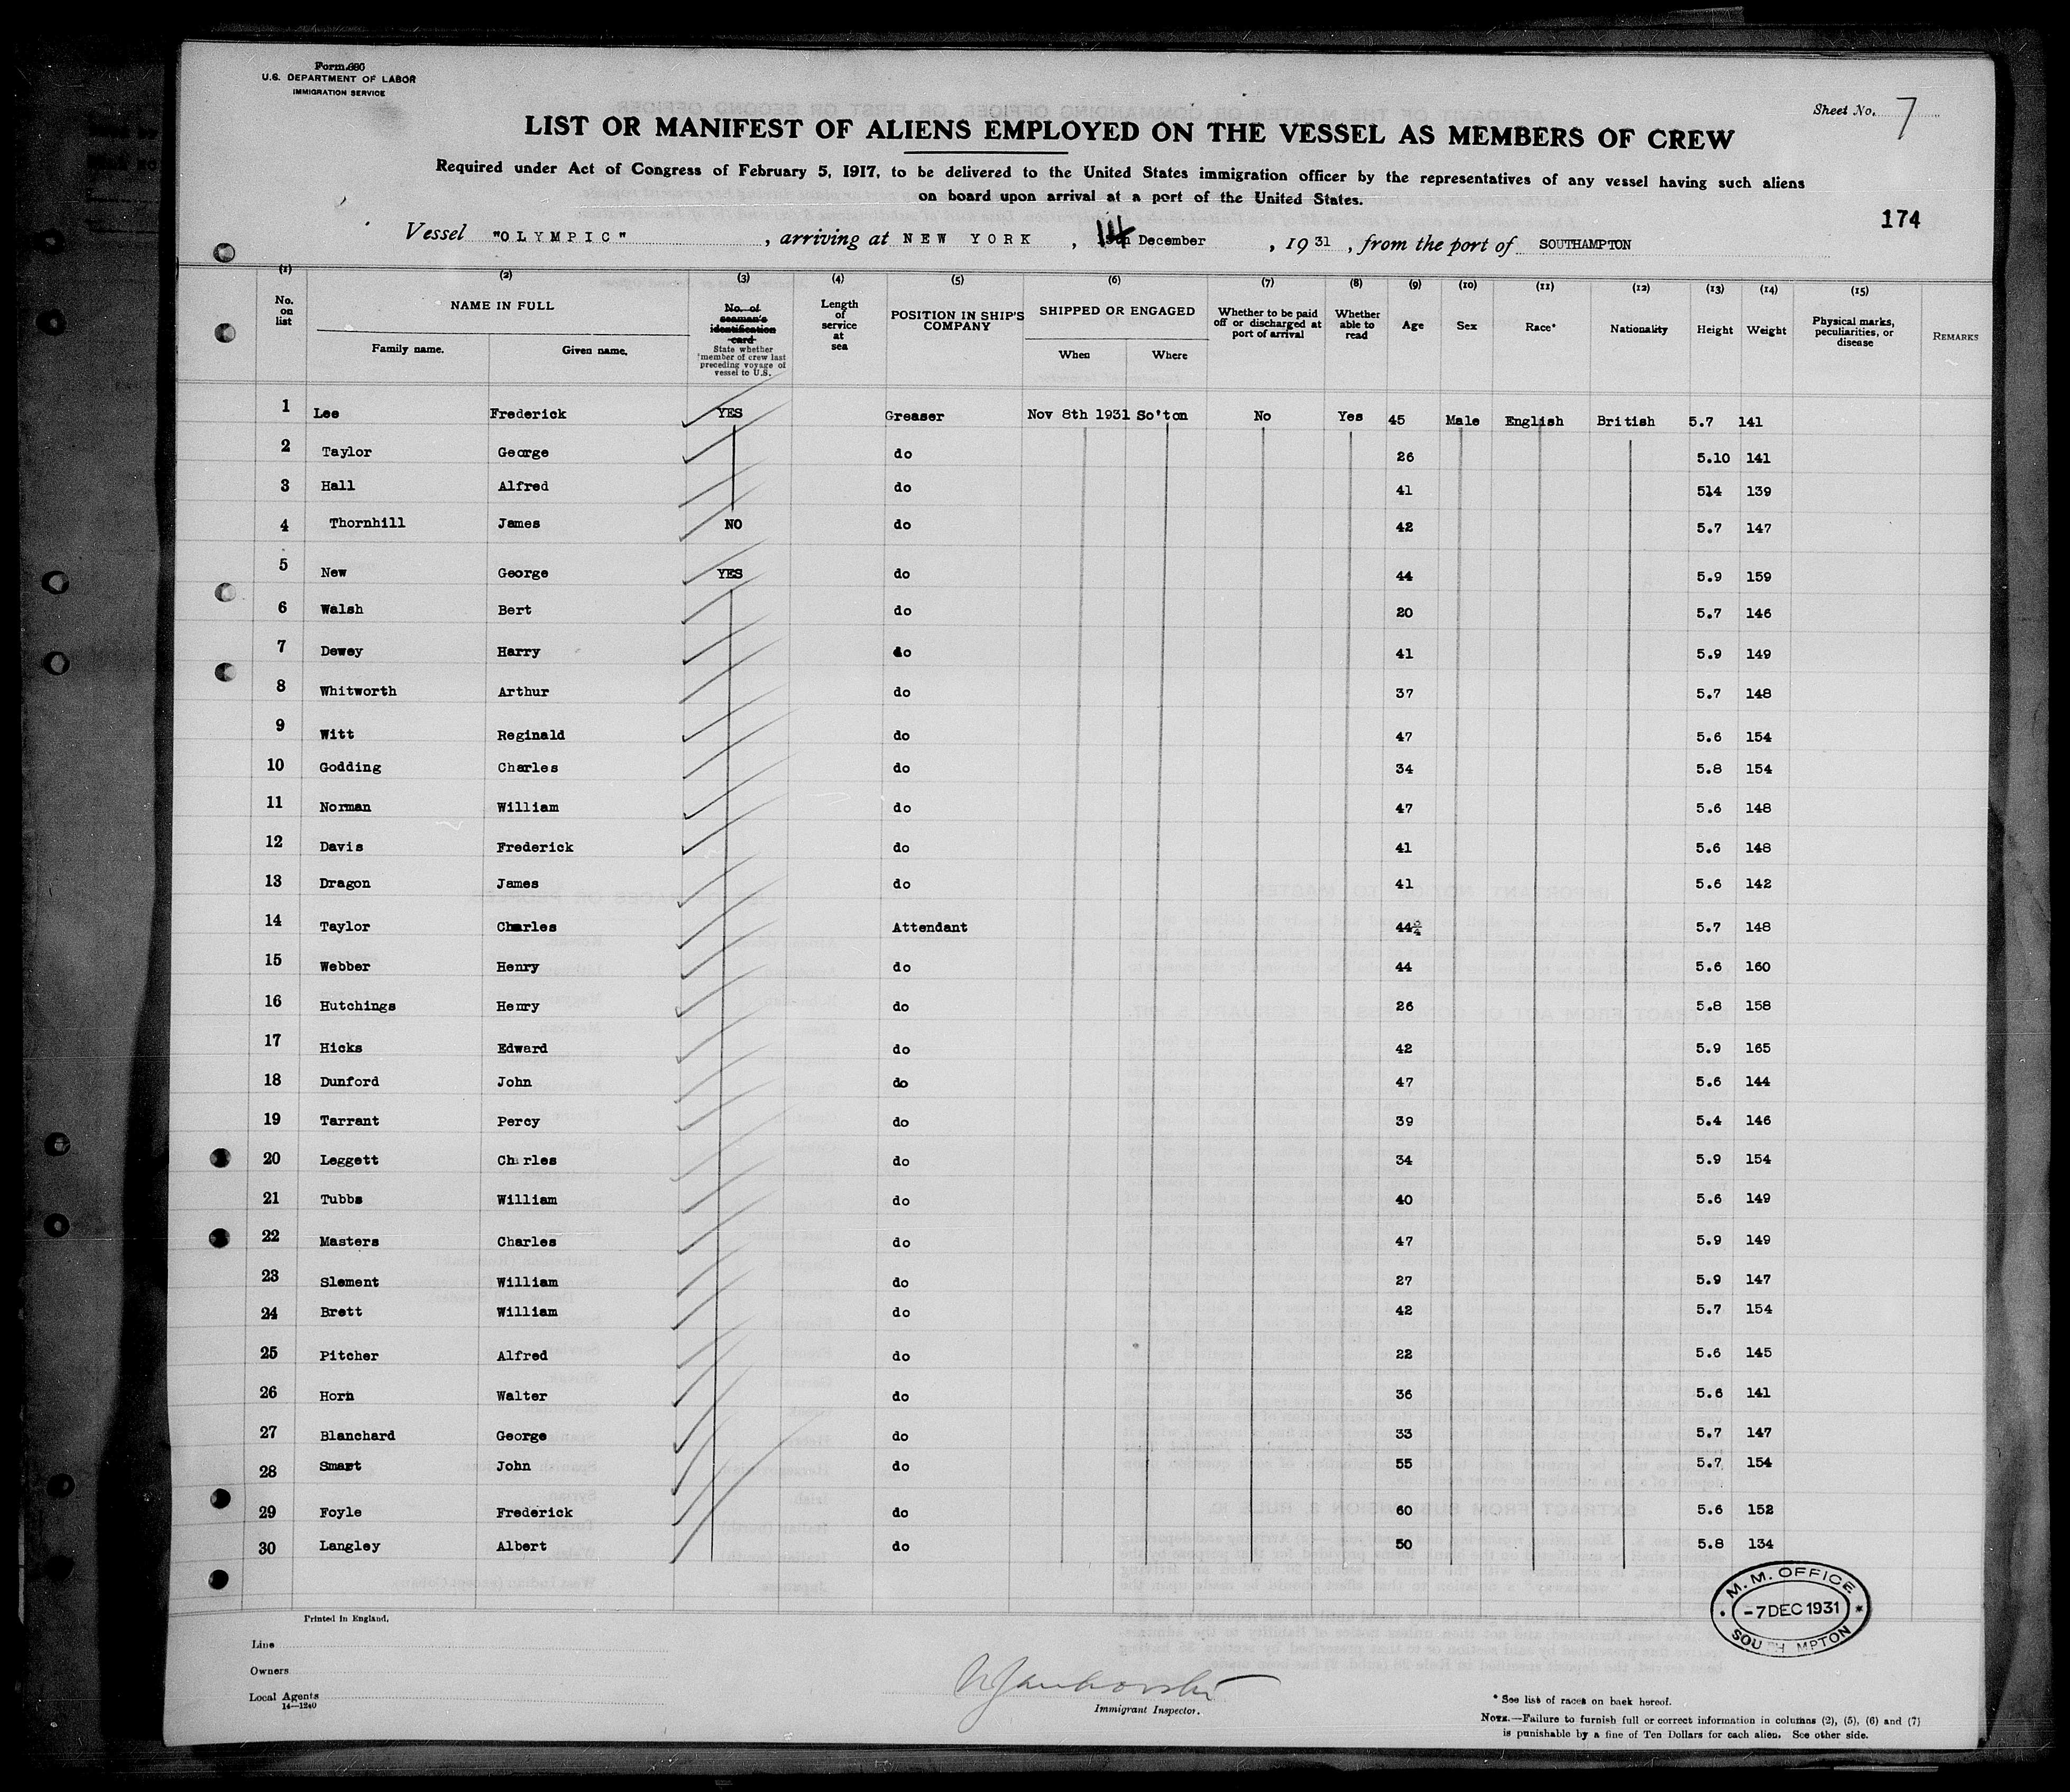 Form 686
U.S. DEPARTMENT OF LABOR
IMMIGRATION SERVICE
Sheet No. 7
LIST OR MANIFEST OF ALIENS EMPLOYED ON THE VESSEL AS MEMBERS OF CREW
Required under Act of Congress of February 5, 1917, to be delivered to the United States immigration officer by the representatives of any vessel having such aliens
on board upon arrival at a port of the United States.
174
Vessel "OLYMPIC", arriving at NEW YORK, 14 December, 1931, from the port of SOUTHAMPTON
(1) (2) (3) (4) (5) (6) (7) (8) (9) (10) (11) (12) (13) (14) (15)
No. on list NAME IN FULL Family name. Given name. No. of seaman's identification card State whether member of crew last preceding voyage of vessel to U.S. Length of service at sea POSITION IN SHIP'S COMPANY SHIPPED OR ENGAGED When Where Whether to be paid off or discharged at port of arrival Whether able to read Age Sex Race* Nationality Height Weight Physical marks, peculiarities, or disease REMARKS
1 Lee Frederick YES Greaser Nov 8th 1931 So'ton No Yes 45 Male English British 5.7 141
2 Taylor George do 26 5.10 141
3 Hall Alfred do 41 514 139
4 Thornhill James NO do 42 5.7 147
5 New George YES do 44 5.9 159
6 Walsh Bert do 20 5.7 146
7 Dewey Harry do 41 5.9 149
8 Whitworth Arthur do 37 5.7 148
9 Witt Reginald do 47 5.6 154
10 Godding Charles do 34 5.8 154
11 Norman William do 47 5.6 148
12 Davis Frederick do 41 5.6 148
13 Dragon James do 41 5.6 142
14 Taylor Charles Attendant 44 5.7 148
15 Webber Henry do 44 5.6 160
16 Hutchings Henry do 26 5.8 158
17 Hicks Edward do 42 5.9 165
18 Dunford John do 47 5.6 144
19 Tarrant Percy do 39 5.4 146
20 Leggett Charles do 34 5.9 154
21 Tubbs William do 40 5.6 149
22 Masters Charles do 47 5.9 149
23 Slement William do 27 5.9 147
24 Brett William do 42 5.7 154
25 Pitcher Alfred do 22 5.6 145
26 Horn Walter do 36 5.6 141
27 Blanchard George do 33 5.7 147
28 Smart John do 55 5.7 154
29 Foyle Frederick do 60 5.6 152
30 Langley Albert do 50 5.8 134
M. M. OFFICE
-7 DEC 1931 *
SOUTHAMPTON
Printed in England.
Line
Owners
Local Agents
14—1240
Immigrant Inspector.
* See list of races on back hereof.
NOTE.—Failure to furnish full or correct information in columns (2), (5), (6) and (7)
is punishable by a fine of Ten Dollars for each alien. See other side.